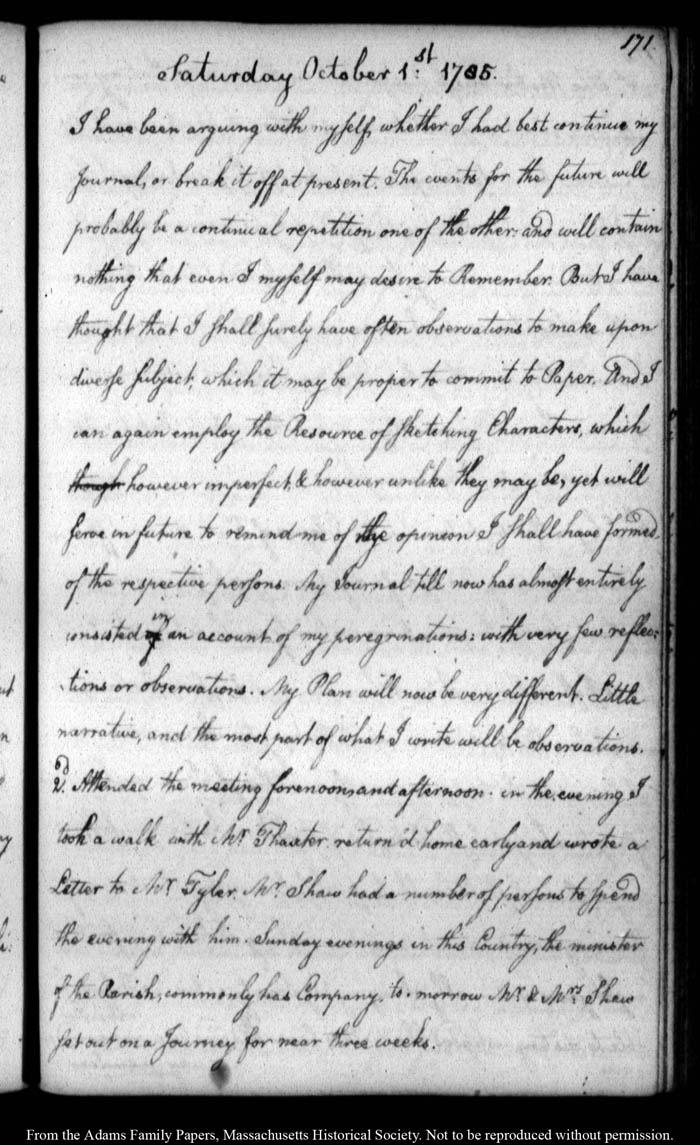 171.
Saturday October 1.st 1785.
I have been arguing with myself, whether I had best continue my
Journal, or break it off at present. The events for the future will
probably be a continual repetition one of the other: and will contain
nothing that even I myself may desire to Remember. But I have
thought that I shall surely have often observations to make upon
diverse subject, which it may be proper to commit to Paper. And I
can again employ the Resource of sketching Characters, which
though however imperfect, & however unlike they may be, yet will
serve in future to remind me of the opinion I shall have formed
of the respective persons. My Journal till now has almost entirely
consisted in an account of my peregrinations: with very few reflec:
:tions or observations. My Plan will now be very different. Little
narrative, and the most part of what I write will be observations.
2.d Attended the meeting forenoon, and afternoon. in the, evening I
took a walk with Mr. Thaxter, return'd home early and wrote a
Letter to Mr. Tyler. Mr. Shaw had a number of persons to spend
the evening with him. Sunday evenings in this Country, the minister
of the Parish, commonly has Company. to-morrow Mr. & Mrs. Shaw
set out on a Journey for near three weeks.
From the Adams Family Papers, Massachusetts Historical Society. Not to be reproduced without permission.